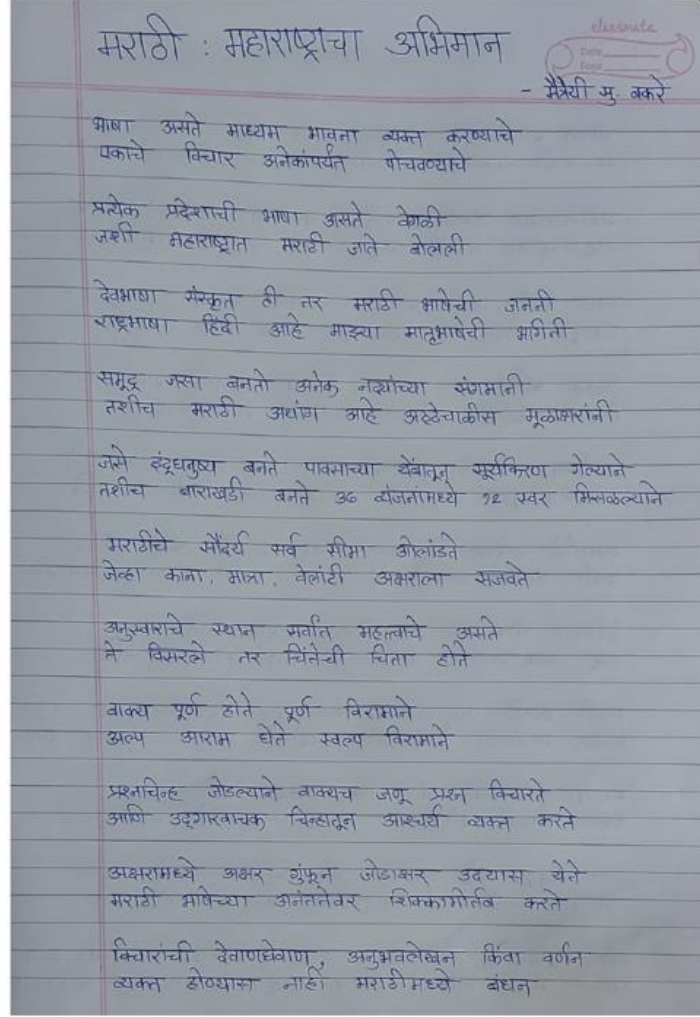 मराठी : महाराष्ट्राचा अभिमान
classmate
Date
Page
- मैत्रेयी मु. वकरे
भाषा असते माध्यम भावना व्यक्त करण्याचे
एकाचे विचार अनेकांपर्यंत पोचवण्याचे
प्रत्येक प्रदेशाची भाषा असते वेगळी
जशी महाराष्ट्रात मराठी जाते बोलली
देवभाषा संस्कृत ही तर मराठी भाषेची जननी
राष्ट्रभाषा हिंदी आहे माझ्या मातृभाषेची भगिनी
समुद्र जसा बनतो अनेक नद्यांच्या संगमानी
तशीच मराठी अथांग आहे अठ्ठेचाळीस मूळाक्षरांनी
जसे इंद्रधनुष्य बनते पावसाच्या थेंबातून सूर्यकिरण गेल्याने
तशीच बाराखडी बनते 36 व्यंजनामध्ये १२ स्वर मिसळल्याने
मराठीचे सौंदर्य सर्व सीमा ओलांडते
जेव्हा काना, मात्रा, वेलांटी अक्षराला सजवते
अनुस्वाराचे स्थान सर्वात महत्त्वाचे असते
ते विसरले तर चिंतेची चिता होते
वाक्य पूर्ण होते पूर्ण विरामाने
अल्प आराम घेते स्वल्प विरामाने
प्रश्नचिन्ह जोडल्याने वाक्यच जणू प्रश्न विचारते
आणि उद्गारवाचक चिन्हातून आश्चर्य व्यक्त करते
अक्षरामध्ये अक्षर गुंफून जोडाक्षर उदयास येते
मराठी भाषेच्या अनंततेवर शिक्कामोर्तब करते
विचारांची देवाणघेवाण, अनुभवलेखन किंवा वर्णन
व्यक्त होण्यास नाही मराठीमध्ये बंधन